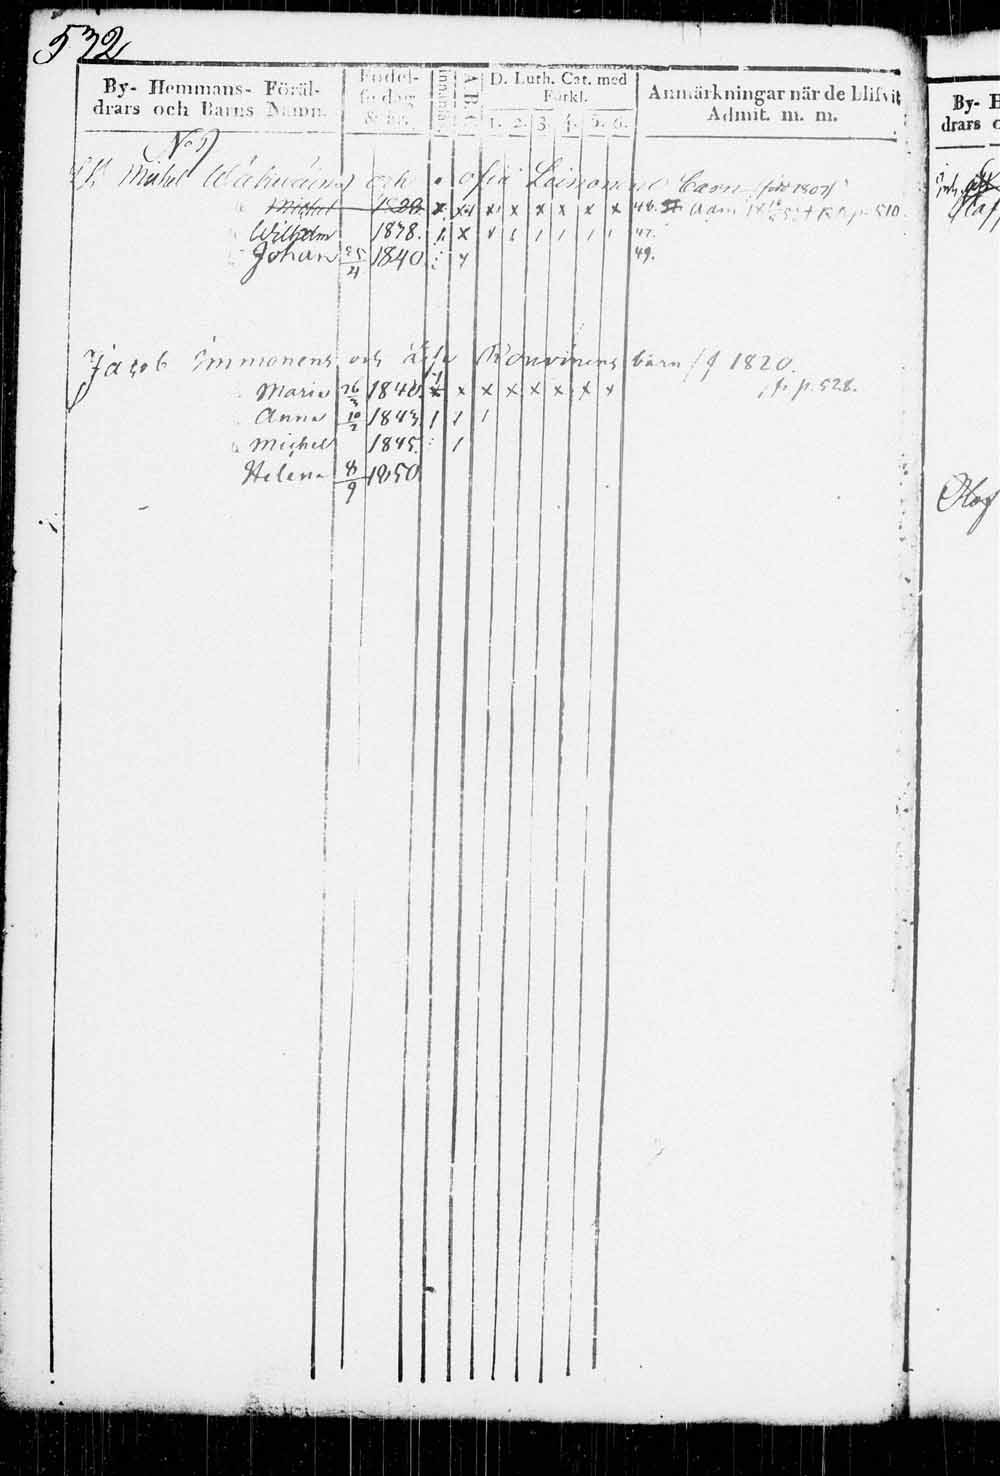 532
By- Hemmans- Föräldrars och Barns Namn.
Födelsedag & år.
A.B.C.
D. Luth. Cat. med Förkl.
1. 2. 3. 4. 5. 6.
Anmärkningar när de blifvit Admit. m. m.
No 9
Michel och Sofia Leinonens barn född 1807
Michel 1820 x x x x x x x x 46. Adm. p. 510
Wilhelm 1838. 1 x 47.
Johan 25/4 1840 49.
Jacob Immonens och Rouvinens barn f 1820.
Maria 26/3 1840 x x x x x x x x p. 528.
Anna 10/2 1843. 1 1 1
Michel 1845. 1
Helena 8/9 1850
By- H
drars o
Olof
Olof